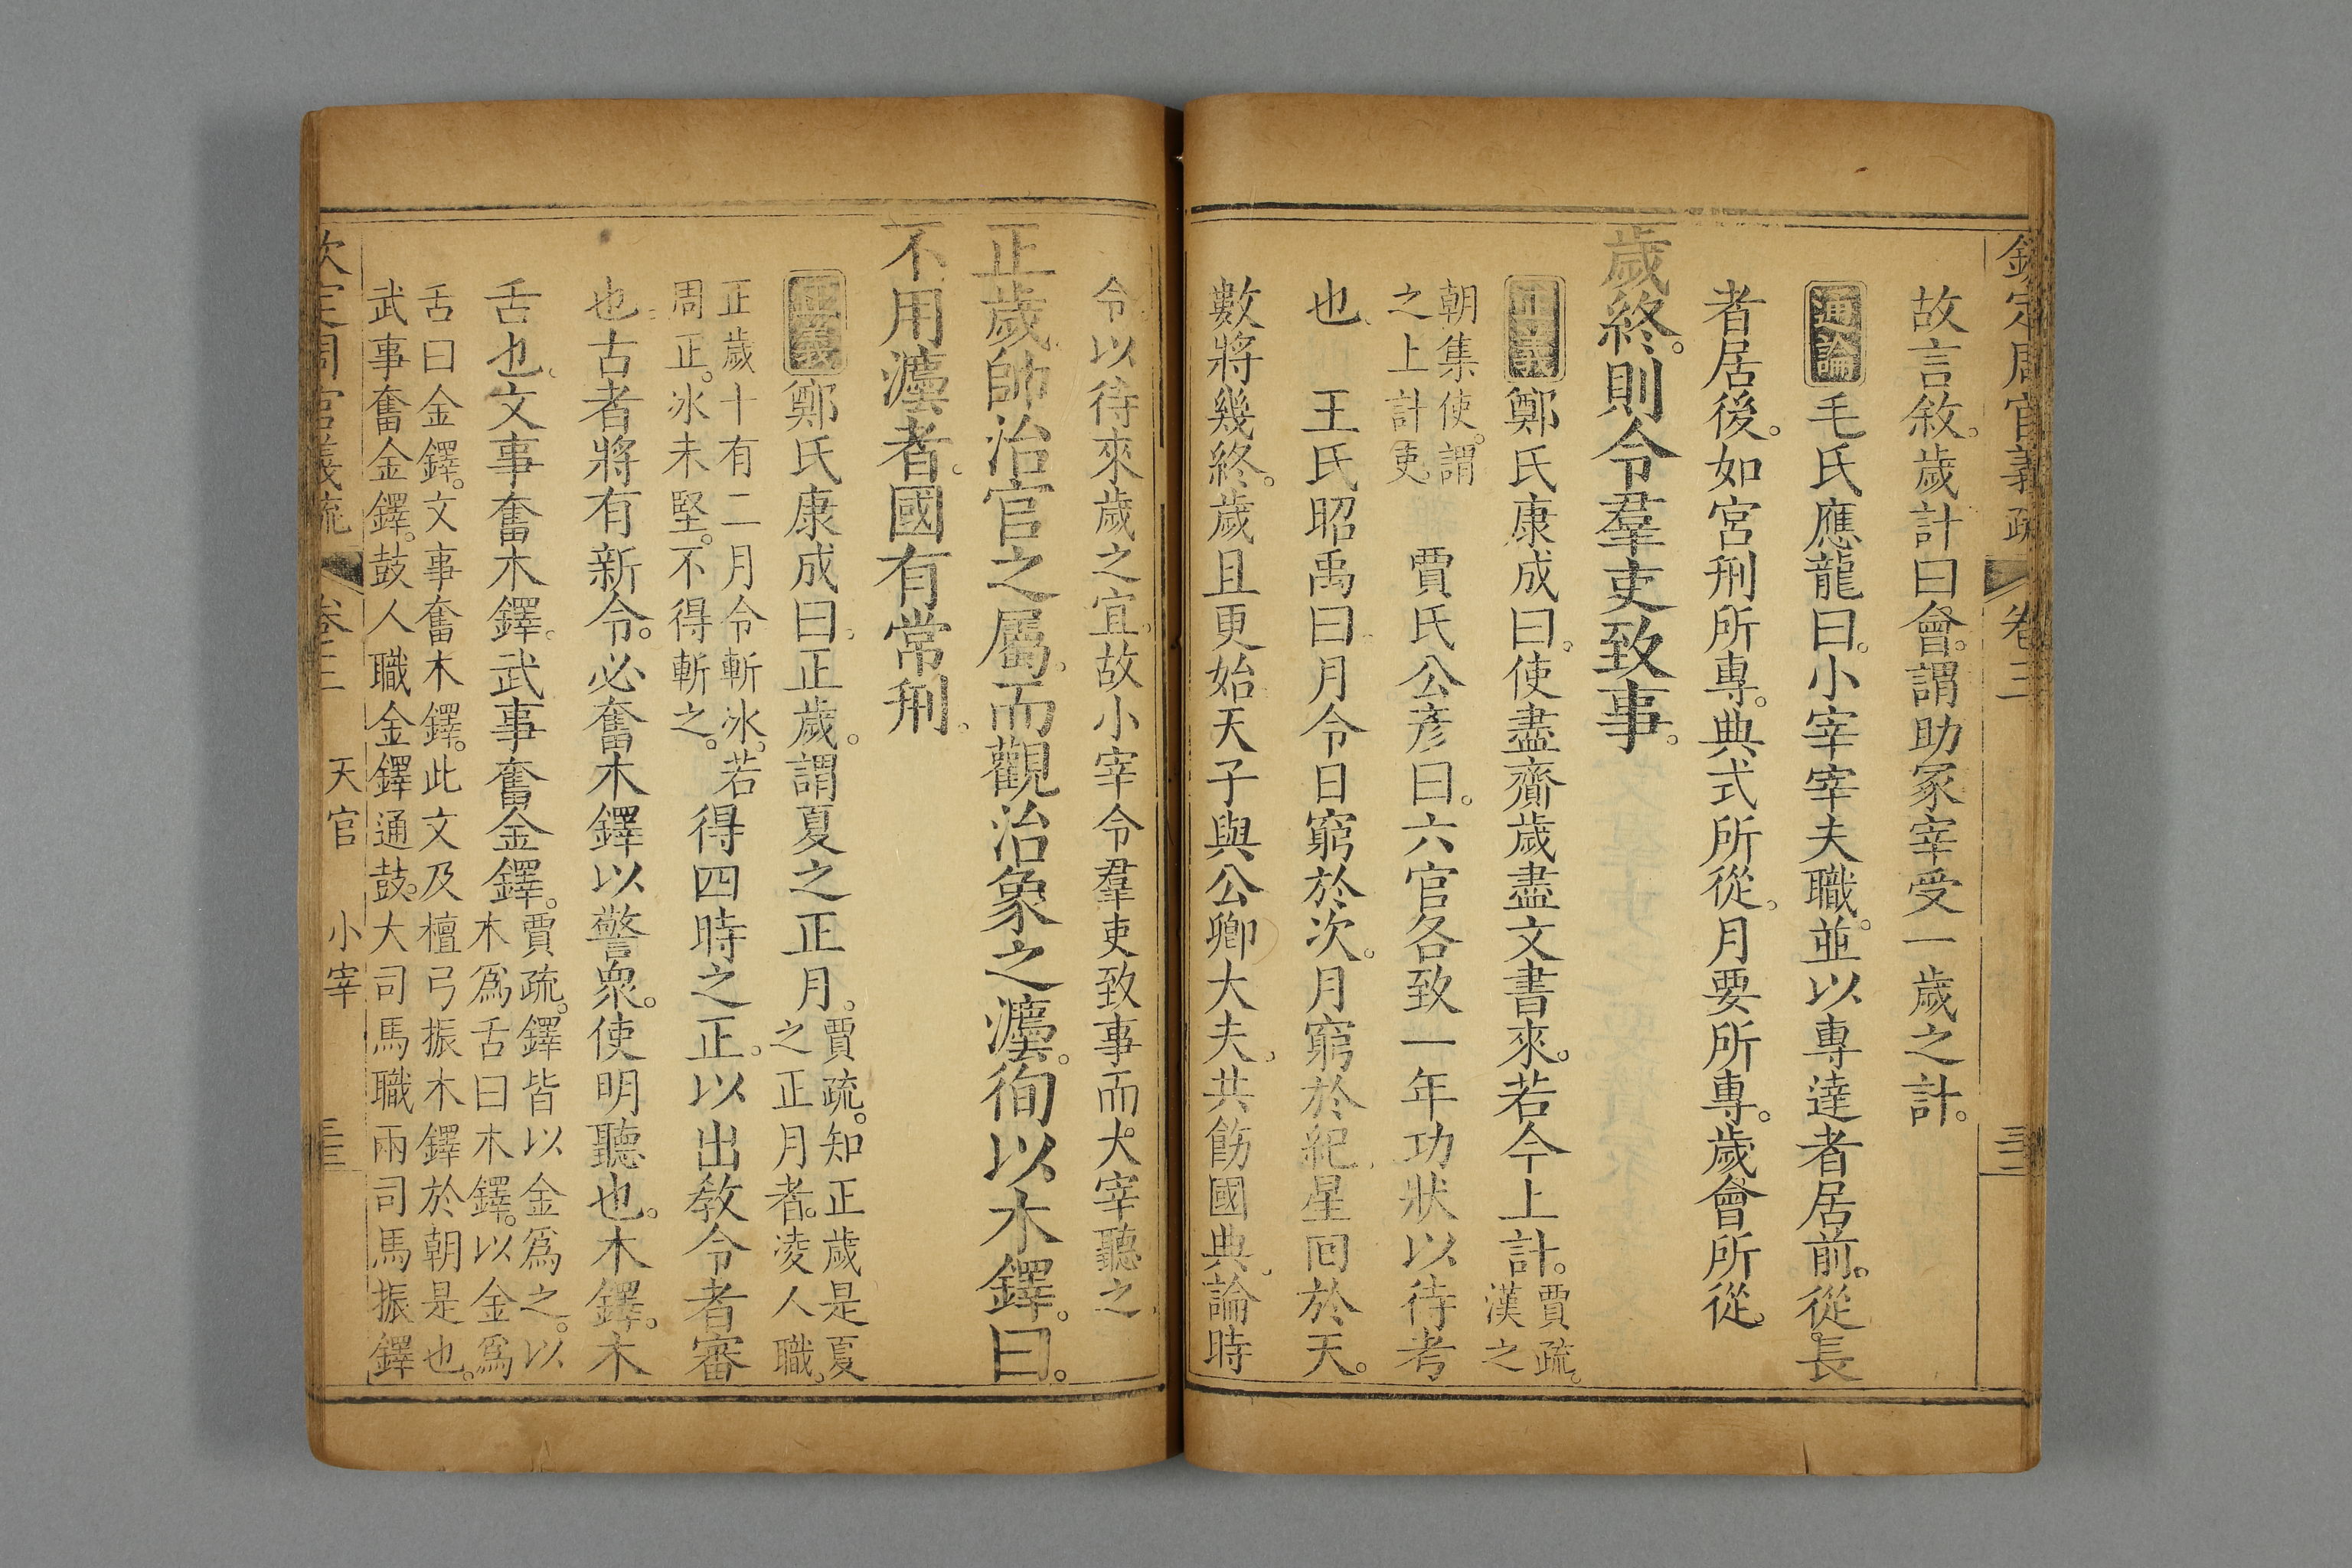 欽定周官義疏 卷三 三二
故言敘。歲計曰會。謂助冢宰受一歲之計。
通論 毛氏應龍曰。小宰宰夫職。並以專達者居前。從長
者居後。如宮刑所專。典式所從。月要所專。歲會所從。
歲終。則令羣吏致事。
正義 鄭氏康成曰。使盡齎歲盡文書來。若今上計。賈疏。
漢之
朝集使。謂
之上計吏。 賈氏公彥曰。六官各致一年功狀以待考
也。 王氏昭禹曰。月令日窮於次。月窮於紀。星囘於天。
數將幾終。歲且更始。天子與公卿大夫。共飭國典。論時
令。以待來歲之宜。故小宰令羣吏致事而大宰聽之。
正歲。帥治官之屬。而觀治象之灋。徇以木鐸。曰。
不用灋者。國有常刑。
正義 鄭氏康成曰。正歲。謂夏之正月。賈疏。知正歲是夏
之正月者。凌人職。
正歲十有二月令斬冰。若
周正。冰未堅。不得斬之。 得四時之正。以出教令者審
也。古者將有新令。必奮木鐸以警眾。使明聽也。木鐸。木
舌也。文事奮木鐸。武事奮金鐸。賈疏。鐸皆以金爲之。以
木爲舌曰木鐸。以金爲
舌曰金鐸。文事奮木鐸。此文及檀弓振木鐸於朝是也。
武事奮金鐸。鼓人職金鐸通鼓。大司馬職兩司馬振鐸
欽定周官義疏 卷三 天官 小宰 三三